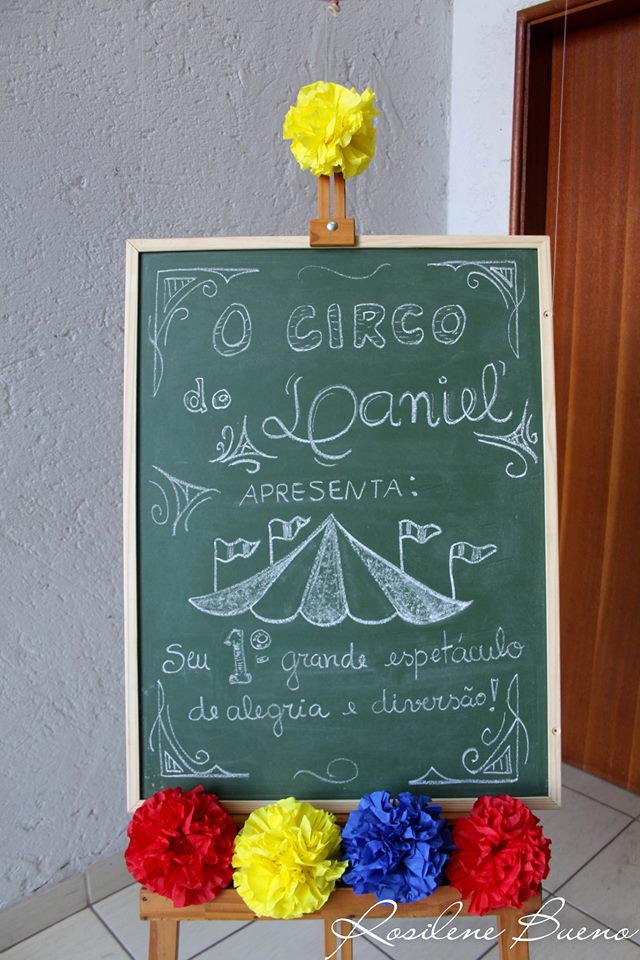 O CIRCO
do Daniel
APRESENTA:
Seu 1º grande espetáculo
de alegria e diversão!
Rosilene Bueno